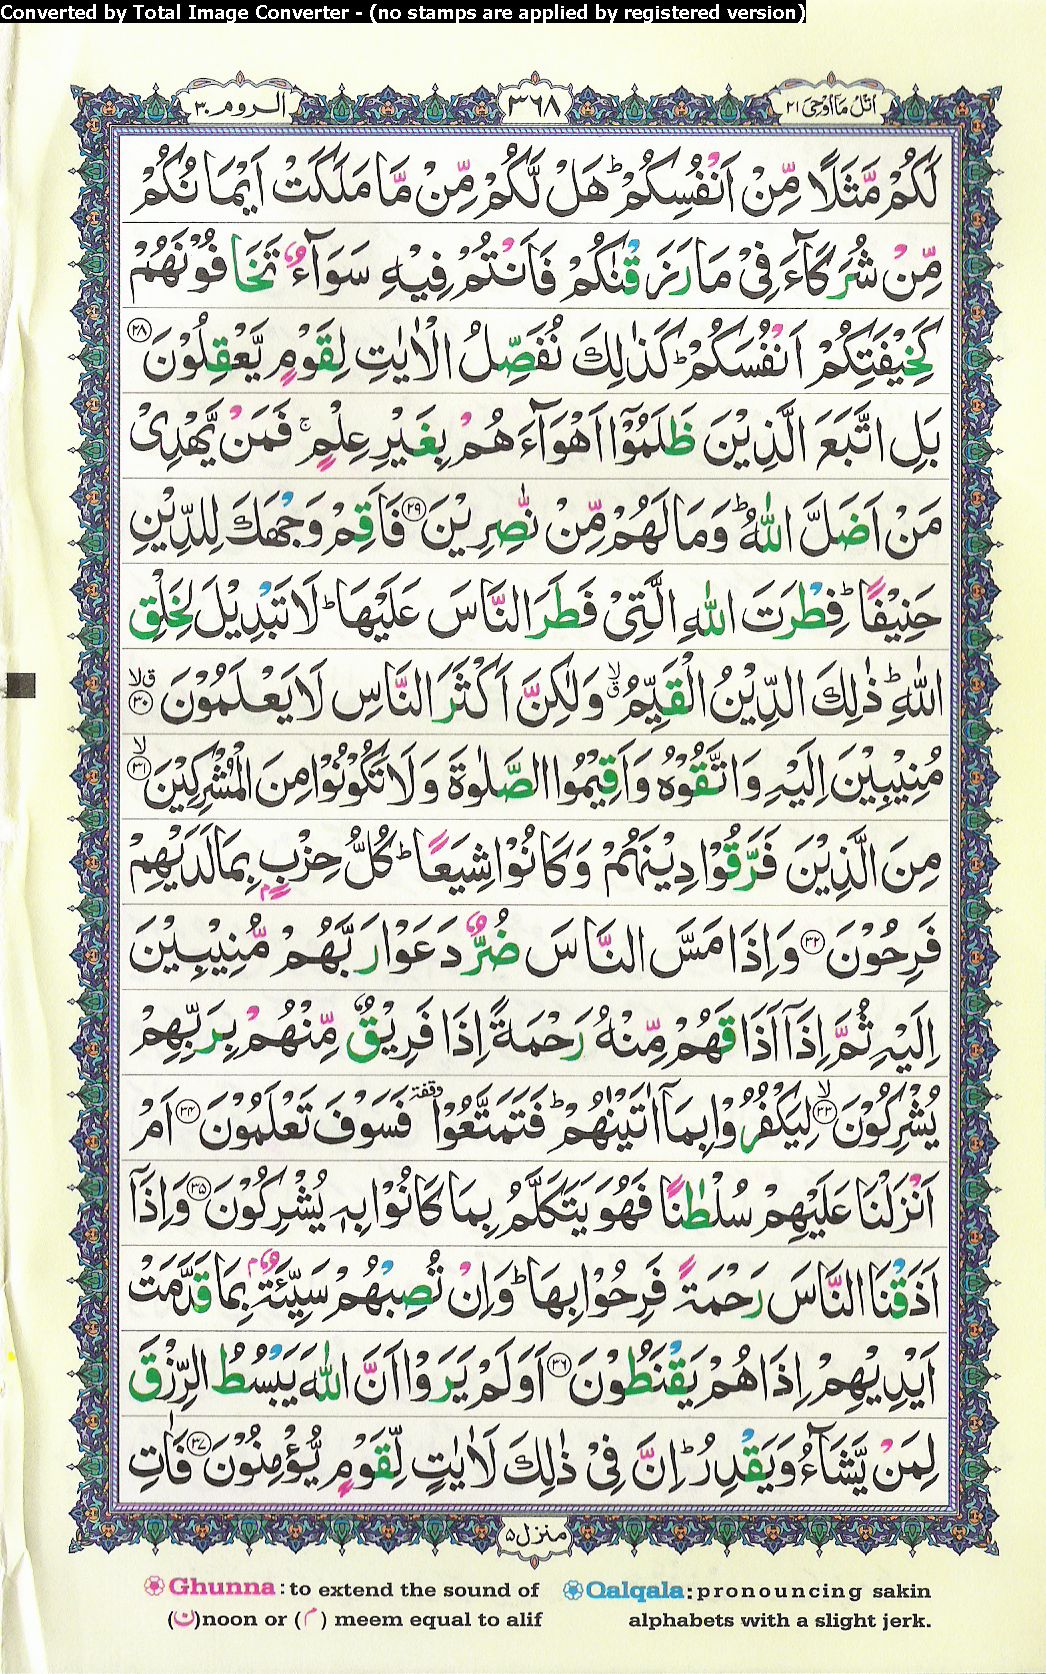 Converted by Total Image Converter - (no stamps are applied by registered version)
اتل ما اوحی ۲۱
۳۶۸
الروم ۳۰
لَكُمْ مَّثَلًا مِّنْ اَنْفُسِكُمْ ؕ هَلْ لَّكُمْ مِّنْ مَّا مَلَكَتْ اَيْمَانُكُمْ
مِّنْ شُرَكَآءَ فِيْ مَا رَزَقْنٰكُمْ فَاَنْتُمْ فِيْهِ سَوَآءٌ تَخَافُوْنَهُمْ
كَخِيْفَتِكُمْ اَنْفُسَكُمْ ؕ كَذٰلِكَ نُفَصِّلُ الْاٰيٰتِ لِقَوْمٍ يَّعْقِلُوْنَ ۲۸
بَلِ اتَّبَعَ الَّذِيْنَ ظَلَمُوْۤا اَهْوَآءَهُمْ بِغَيْرِ عِلْمٍ ۚ فَمَنْ يَّهْدِيْ
مَنْ اَضَلَّ اللّٰهُ ؕ وَمَا لَهُمْ مِّنْ نّٰصِرِيْنَ ۲۹ فَاَقِمْ وَجْهَكَ لِلدِّيْنِ
حَنِيْفًا ؕ فِطْرَتَ اللّٰهِ الَّتِيْ فَطَرَ النَّاسَ عَلَيْهَا ؕ لَا تَبْدِيْلَ لِخَلْقِ
اللّٰهِ ؕ ذٰلِكَ الدِّيْنُ الْقَيِّمُ ۙۗ وَلٰكِنَّ اَكْثَرَ النَّاسِ لَا يَعْلَمُوْنَ ۳۰ ق لا
مُنِيْبِيْنَ اِلَيْهِ وَاتَّقُوْهُ وَاَقِيْمُوا الصَّلٰوةَ وَلَا تَكُوْنُوْا مِنَ الْمُشْرِكِيْنَ ۳۱ لا
مِنَ الَّذِيْنَ فَرَّقُوْا دِيْنَهُمْ وَكَانُوْا شِيَعًا ؕ كُلُّ حِزْبٍۭ بِمَا لَدَيْهِمْ
فَرِحُوْنَ ۳۲ وَاِذَا مَسَّ النَّاسَ ضُرٌّ دَعَوْا رَبَّهُمْ مُّنِيْبِيْنَ
اِلَيْهِ ثُمَّ اِذَاۤ اَذَاقَهُمْ مِّنْهُ رَحْمَةً اِذَا فَرِيْقٌ مِّنْهُمْ بِرَبِّهِمْ
يُشْرِكُوْنَ ۳۳ لا لِيَكْفُرُوْا بِمَاۤ اٰتَيْنٰهُمْ ؕ فَتَمَتَّعُوْا وقفة فَسَوْفَ تَعْلَمُوْنَ ۳۴ اَمْ
اَنْزَلْنَا عَلَيْهِمْ سُلْطٰنًا فَهُوَ يَتَكَلَّمُ بِمَا كَانُوْا بِهٖ يُشْرِكُوْنَ ۳۵ وَاِذَاۤ
اَذَقْنَا النَّاسَ رَحْمَةً فَرِحُوْا بِهَا ؕ وَاِنْ تُصِبْهُمْ سَيِّئَةٌۢ بِمَا قَدَّمَتْ
اَيْدِيْهِمْ اِذَا هُمْ يَقْنَطُوْنَ ۳۶ اَوَلَمْ يَرَوْا اَنَّ اللّٰهَ يَبْسُطُ الرِّزْقَ
لِمَنْ يَّشَآءُ وَيَقْدِرُ ؕ اِنَّ فِيْ ذٰلِكَ لَاٰيٰتٍ لِّقَوْمٍ يُّؤْمِنُوْنَ ۳۷ فَاٰتِ
منزل ۵
Ghunna: to extend the sound of
(ن) noon or (م) meem equal to alif
Qalqala: pronouncing sakin
alphabets with a slight jerk.